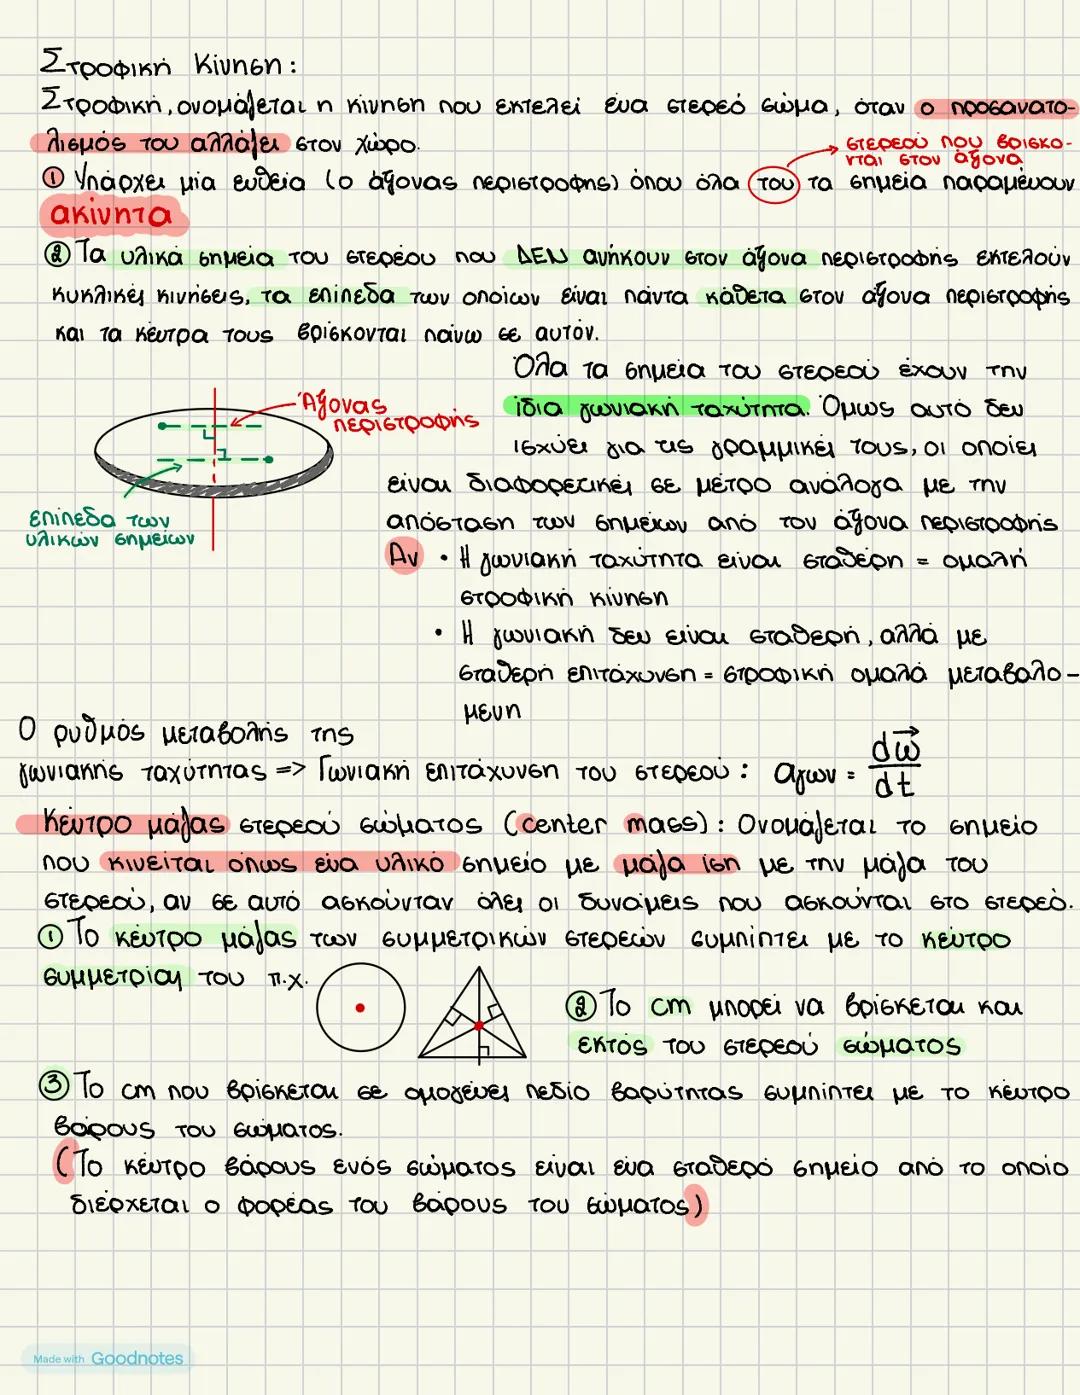 Στροφική Κίνηση:
Στροφική, ονομάζεται η κίνηση που εκτελεί ένα στερεό σώμα, όταν ο προσανατο-
λισμός του αλλάζει στον χώρο.
στερεού που βρισκο-
νται στον άξονα
① Υπάρχει μία ευθεία (ο άξονας περιστροφής) όπου όλα του τα σημεία παραμένουν
ακίνητα
② Τα υλικά σημεία του στερέου που ΔΕΝ ανήκουν στον άξονα περιστροφής εκτελούν
κυκλικές κινήσεις, τα επίπεδα των οποίων είναι πάντα κάθετα στον άξονα περιστροφής
και τα κέντρα τους βρίσκονται πάνω σε αυτόν.
Όλα τα σημεία του στερεού έχουν την
ίδια γωνιακή ταχύτητα. Όμως αυτό δεν
ισχύει για τις γραμμικές τους, οι οποίες
είναι διαφορετικές σε μέτρο ανάλογα με την
απόσταση των σημείων από τον άξονα περιστροφής
Άξονας
περιστροφής
επίπεδα των
υλικών σημείων
Αν • Η γωνιακή ταχύτητα είναι σταθερή = ομαλή
στροφική κίνηση
• Η γωνιακή δεν είναι σταθερή, αλλά με
σταθερή επιτάχυνση = στροφική ομαλά μεταβαλο-
μενη
Ο ρυθμός μεταβολής της
γωνιακής ταχύτητας => Γωνιακή επιτάχυνση του στερεού: αγων = dω⃗/dt
Κέντρο μάζας στερεού σώματος (center mass): Ονομάζεται το σημείο
που κινείται όπως ένα υλικό σημείο με μάζα ίση με την μάζα του
στερεού, αν σε αυτό ασκούνταν όλες οι δυνάμεις που ασκούνται στο στερεό.
① Το κέντρο μάζας των συμμετρικών στερεών συμπίπτει με το κέντρο
συμμετρίας του π.χ.
② Το cm μπορεί να βρίσκεται και
εκτός του στερεού σώματος
③ Το cm που βρίσκεται σε ομογενές πεδίο βαρύτητας συμπίπτει με το κέντρο
βάρους του σώματος.
(Το κέντρο βάρους ενός σώματος είναι ένα σταθερό σημείο από το οποίο
διέρχεται ο φορέας του βάρους του σώματος)
Made with Goodnotes